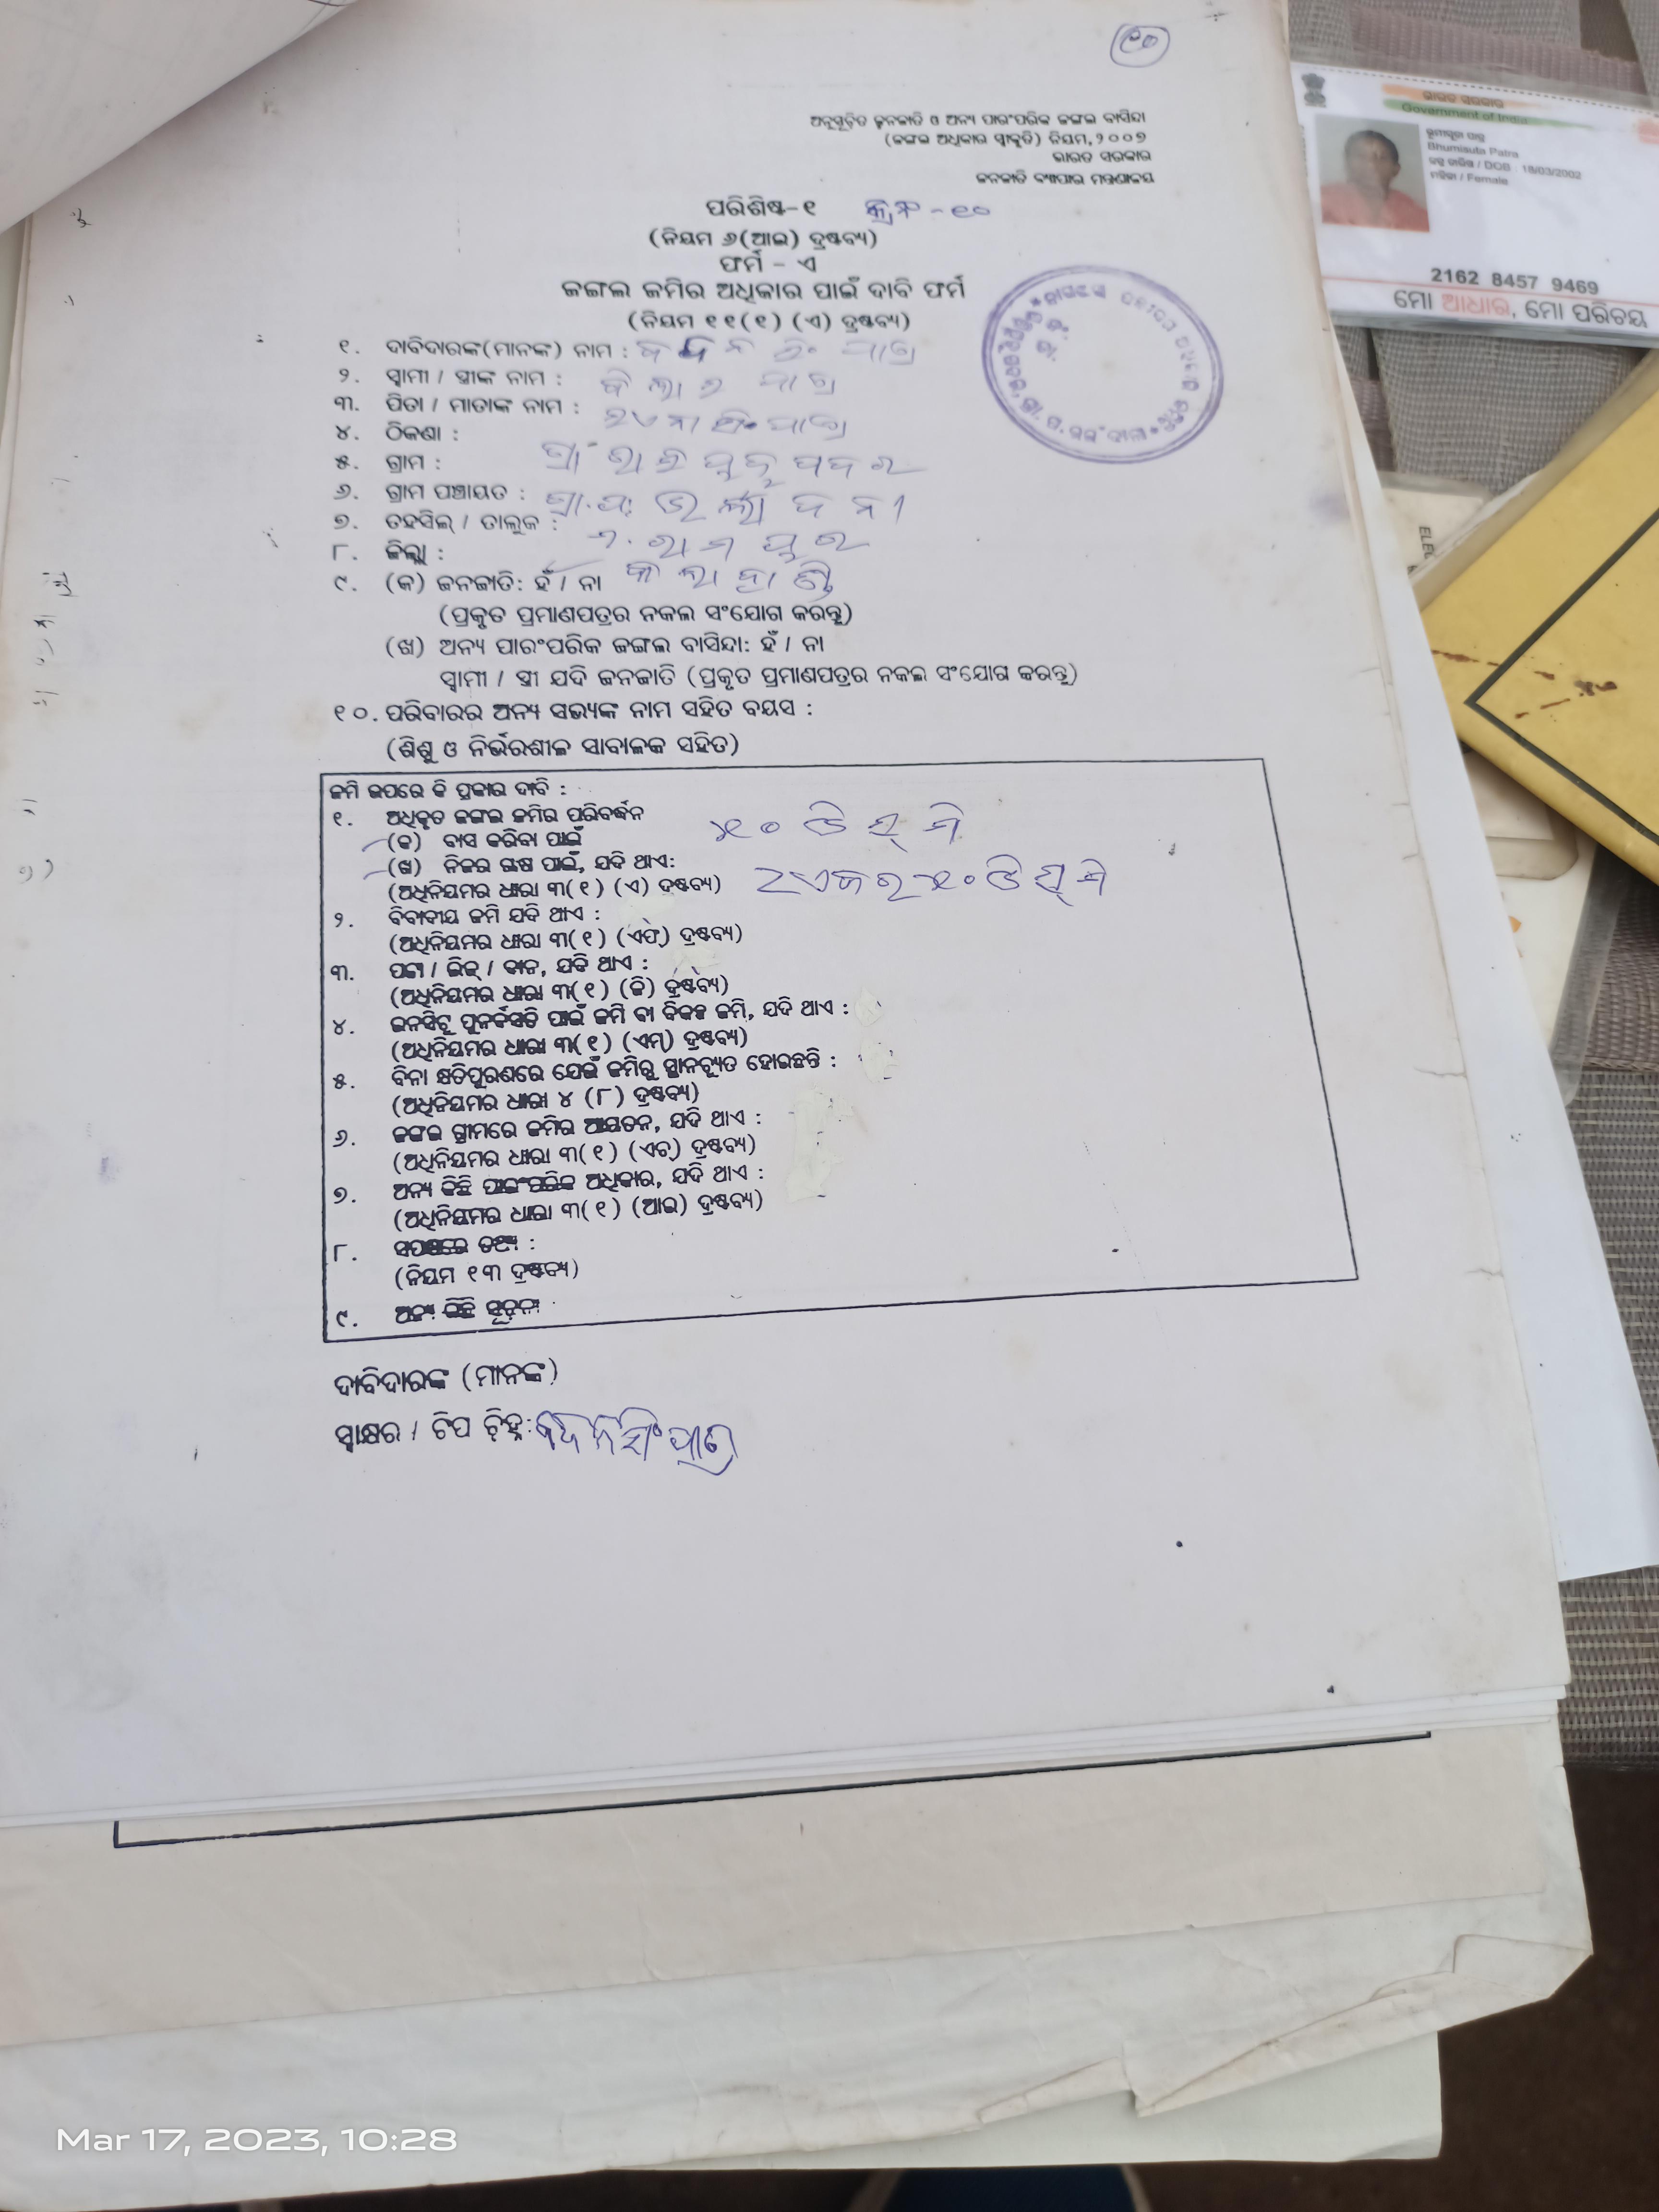 ୧୦
ଅନୁସୂଚିତ ଜନଜାତି ଓ ଅନ୍ୟ ପାରଂପରିକ ଜଙ୍ଗଲ ବାସିନ୍ଦା
(ଜଙ୍ଗଲ ଅଧିକାର ସ୍ୱୀକୃତି) ନିୟମ, ୨୦୦୭
ଭାରତ ସରକାର
ଜନଜାତି ବ୍ୟାପାର ମନ୍ତ୍ରଣାଳୟ
ପରିଶିଷ୍ଟ-୧ କ୍ରନଂ - ୧୦
(ନିୟମ ୬(ଆଇ) ଦ୍ରଷ୍ଟବ୍ୟ)
ଫର୍ମ - ଏ
ଜଙ୍ଗଲ ଜମିର ଅଧିକାର ପାଇଁ ଦାବି ଫର୍ମ
(ନିୟମ ୧୧(୧) (ଏ) ଦ୍ରଷ୍ଟବ୍ୟ)
୧. ଦାବିଦାରଙ୍କ(ମାନଙ୍କ) ନାମ : ପାତ୍ର
୨. ସ୍ୱାମୀ / ସ୍ତ୍ରୀଙ୍କ ନାମ : ପାତ୍ର
୩. ପିତା / ମାତାଙ୍କ ନାମ : ପାତ୍ର
୪. ଠିକଣା :
୫. ଗ୍ରାମ :
୬. ଗ୍ରାମ ପଞ୍ଚାୟତ : ଗ୍ରା.ପଂ
୭. ତହସିଲ୍ / ତାଲୁକ : ରାମପୁର
୮. ଜିଲ୍ଲା : କଳାହାଣ୍ଡି
୯. (କ) ଜନଜାତି: ହଁ / ନା
(ପ୍ରକୃତ ପ୍ରମାଣପତ୍ରର ନକଲ ସଂଯୋଗ କରନ୍ତୁ)
(ଖ) ଅନ୍ୟ ପାରଂପରିକ ଜଙ୍ଗଲ ବାସିନ୍ଦା: ହଁ / ନା
ସ୍ୱାମୀ / ସ୍ତ୍ରୀ ଯଦି ଜନଜାତି (ପ୍ରକୃତ ପ୍ରମାଣପତ୍ରର ନକଲ ସଂଯୋଗ କରନ୍ତୁ)
୧୦. ପରିବାରର ଅନ୍ୟ ସଭ୍ୟଙ୍କ ନାମ ସହିତ ବୟସ :
(ଶିଶୁ ଓ ନିର୍ଭରଶୀଳ ସାବାଳକ ସହିତ)
ଜମି ଉପରେ କି ପ୍ରକାର ଦାବି :
୧. ଅଧିକୃତ ଜଙ୍ଗଲ ଜମିର ପରିବର୍ଦ୍ଧନ
(କ) ବାସ କରିବା ପାଇଁ ୫୦ ଡିସ୍ମି
(ଖ) ନିଜର ଚାଷ ପାଇଁ, ଯଦି ଥାଏ:
(ଅଧିନିୟମର ଧାରା ୩(୧) (ଏ) ଦ୍ରଷ୍ଟବ୍ୟ) 2ଏକର ୫୦ ଡିସ୍ମି
୨. ବିବାଦୀୟ ଜମି ଯଦି ଥାଏ :
(ଅଧିନିୟମର ଧାରା ୩(୧) (ଏଫ୍) ଦ୍ରଷ୍ଟବ୍ୟ)
୩. ପଟ୍ଟା / ଲିଜ୍ / ଦାନ, ଯଦି ଥାଏ :
(ଅଧିନିୟମର ଧାରା ୩(୧) (ଜି) ଦ୍ରଷ୍ଟବ୍ୟ)
୪. ଇନସିଟୁ ପୁନର୍ବସତି ପାଇଁ ଜମି ବା ବିକଳ୍ପ ଜମି, ଯଦି ଥାଏ :
(ଅଧିନିୟମର ଧାରା ୩(୧) (ଏମ୍) ଦ୍ରଷ୍ଟବ୍ୟ)
୫. ବିନା କ୍ଷତିପୂରଣରେ ଯେଉଁ ଜମିରୁ ସ୍ଥାନଚ୍ୟୁତ ହୋଇଛନ୍ତି :
(ଅଧିନିୟମର ଧାରା ୪ (୮) ଦ୍ରଷ୍ଟବ୍ୟ)
୬. ଜଙ୍ଗଲ ଗ୍ରାମରେ ଜମିର ଆୟତନ, ଯଦି ଥାଏ :
(ଅଧିନିୟମର ଧାରା ୩(୧) (ଏଚ୍) ଦ୍ରଷ୍ଟବ୍ୟ)
୭. ଅନ୍ୟ କିଛି ପାରଂପରିକ ଅଧିକାର, ଯଦି ଥାଏ :
(ଅଧିନିୟମର ଧାରା ୩(୧) (ଆଇ) ଦ୍ରଷ୍ଟବ୍ୟ)
୮. ସପକ୍ଷରେ ତଥ୍ୟ :
(ନିୟମ ୧୩ ଦ୍ରଷ୍ଟବ୍ୟ)
୯. ଅନ୍ୟ କିଛି ସୂଚନା
ଦାବିଦାରଙ୍କ (ମାନଙ୍କ)
ସ୍ୱାକ୍ଷର / ଟିପ ଚିହ୍ନ: ପାତ୍ର
ଭାରତ ସରକାର
Government of India
Bhumisuta Patra
ଜନ୍ମ ତାରିଖ / DOB : 18/03/2002
ମହିଳା / Female
2162 8457 9469
ମୋ ଆଧାର, ମୋ ପରିଚୟ
Mar 17, 2023, 10:28